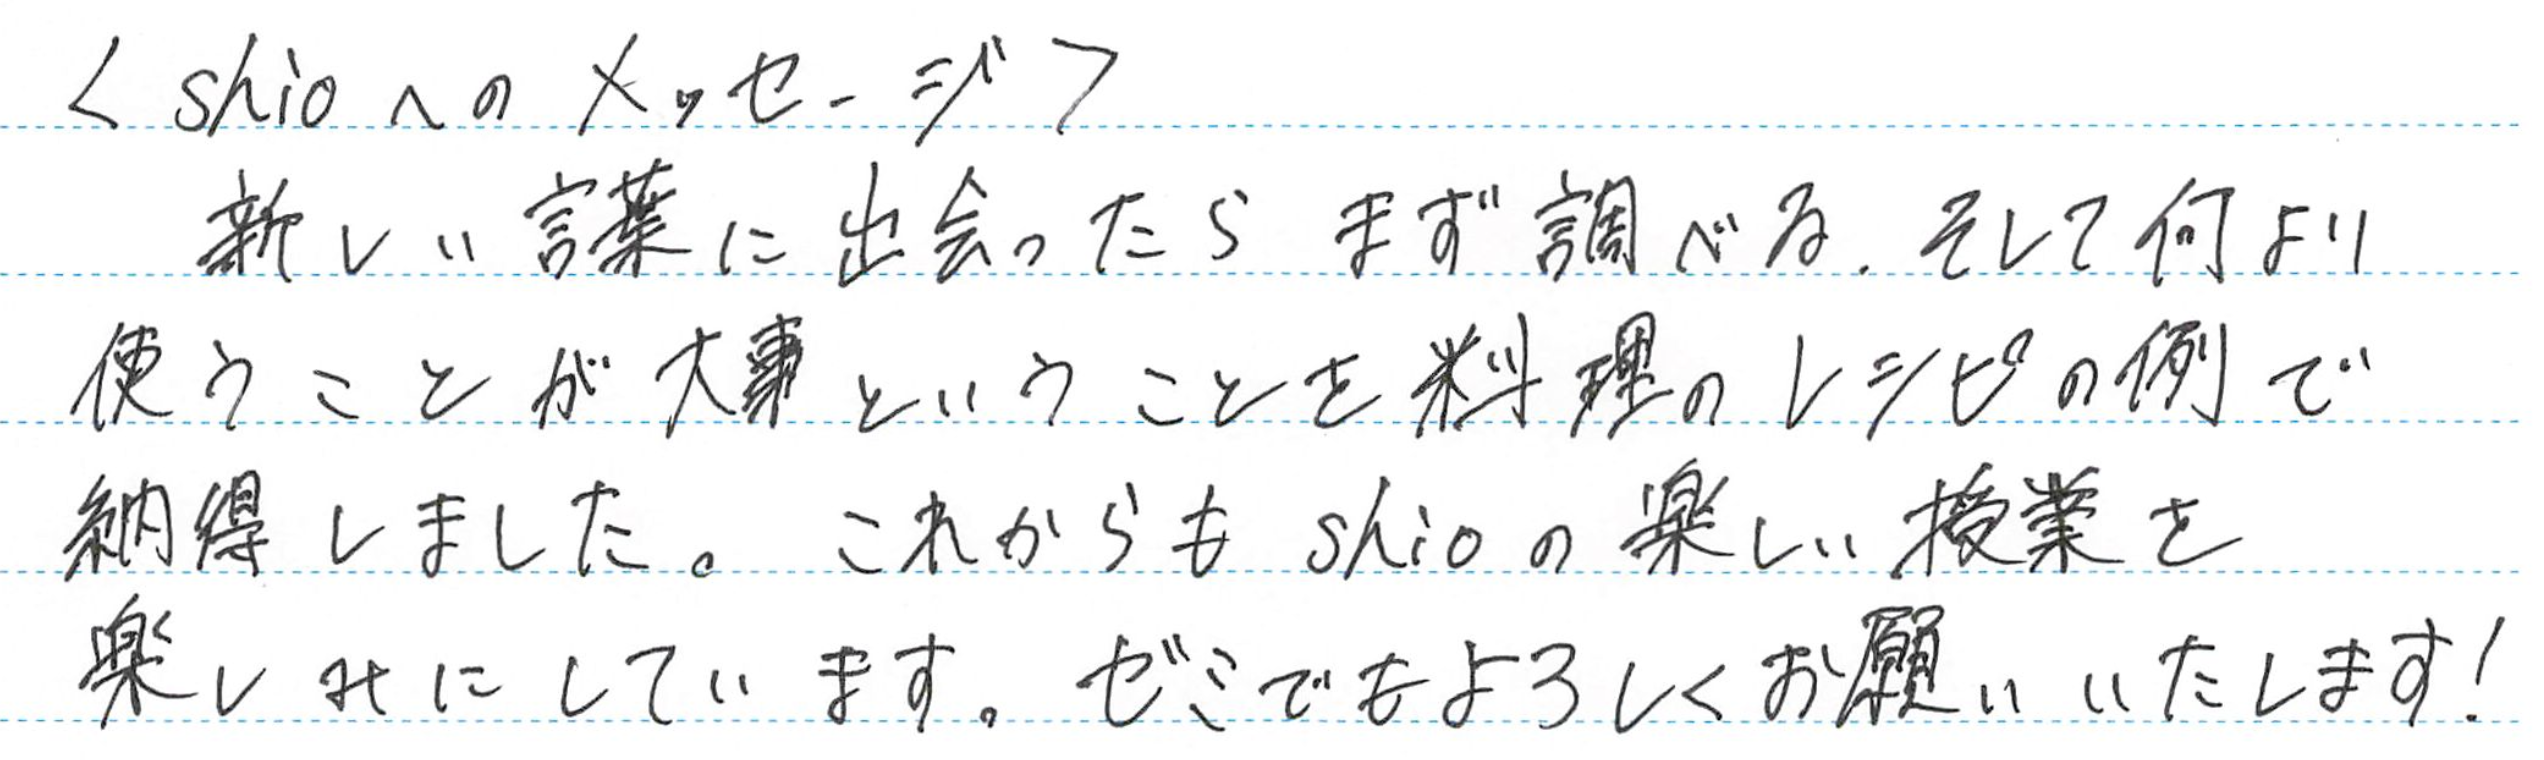 <shioへのメッセージ>
新しい言葉に出会ったらまず調べる.そして何より
使うことが大事ということを料理のレシピの例で
納得しました。これからもshioの楽しい授業を
楽しみにしています。ゼミでもよろしくお願いいたします!